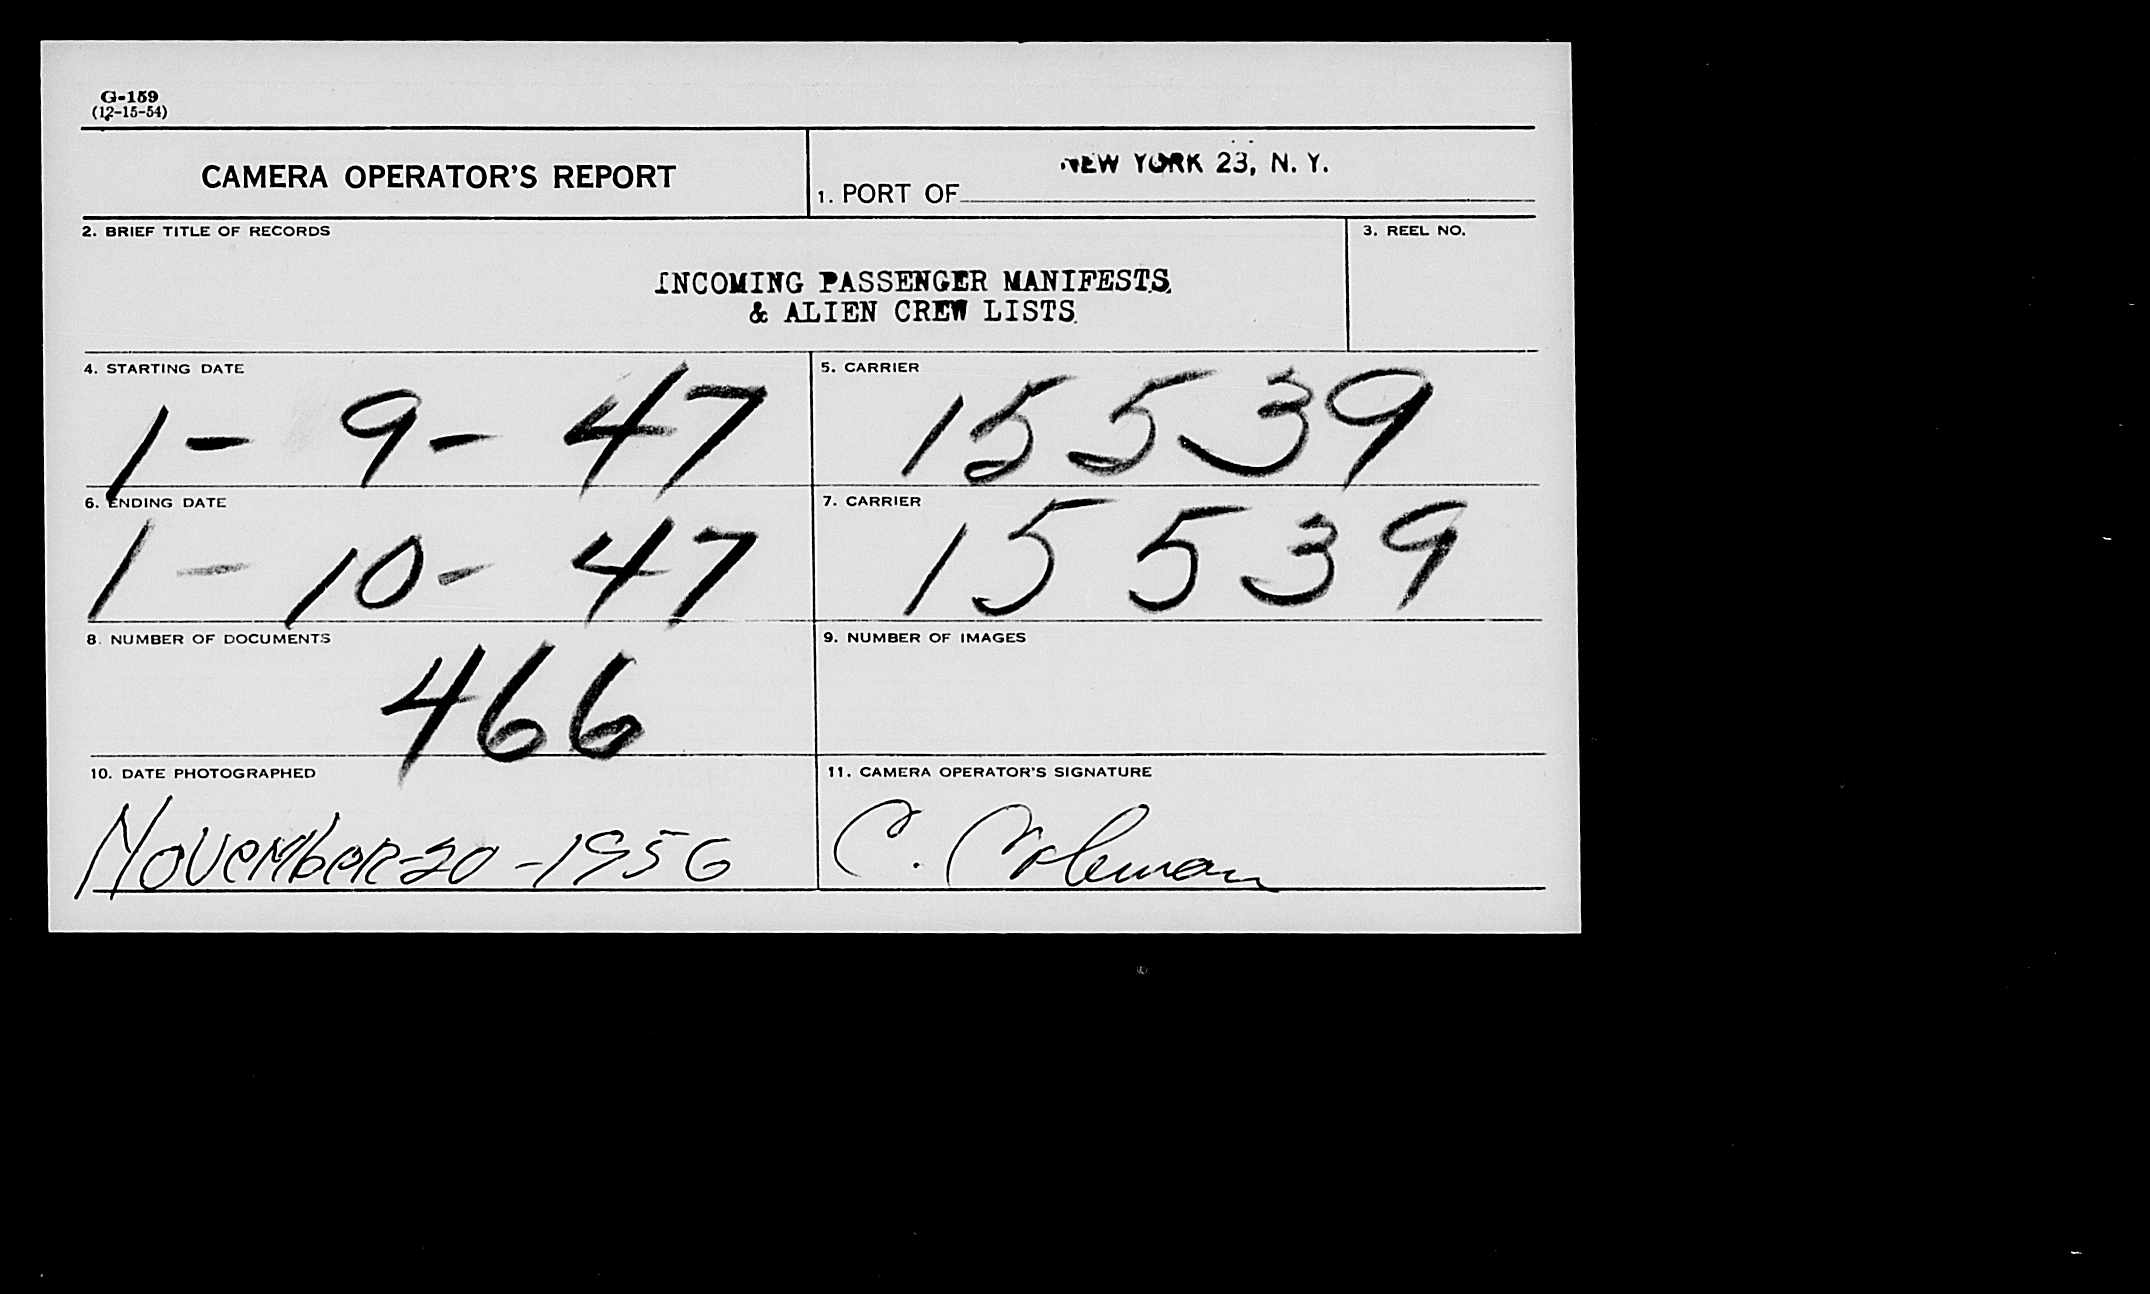 G-159
(12-15-54)
CAMERA OPERATOR'S REPORT
NEW YORK 23, N. Y.
1. PORT OF
2. BRIEF TITLE OF RECORDS
3. REEL NO.
INCOMING PASSENGER MANIFESTS
& ALIEN CREW LISTS
4. STARTING DATE
1 - 9 - 47
5. CARRIER
15539
6. ENDING DATE
1 - 10 - 47
7. CARRIER
15539
8. NUMBER OF DOCUMENTS
466
9. NUMBER OF IMAGES
10. DATE PHOTOGRAPHED
NOVEMBER-20-1956
11. CAMERA OPERATOR'S SIGNATURE
C. Coleman